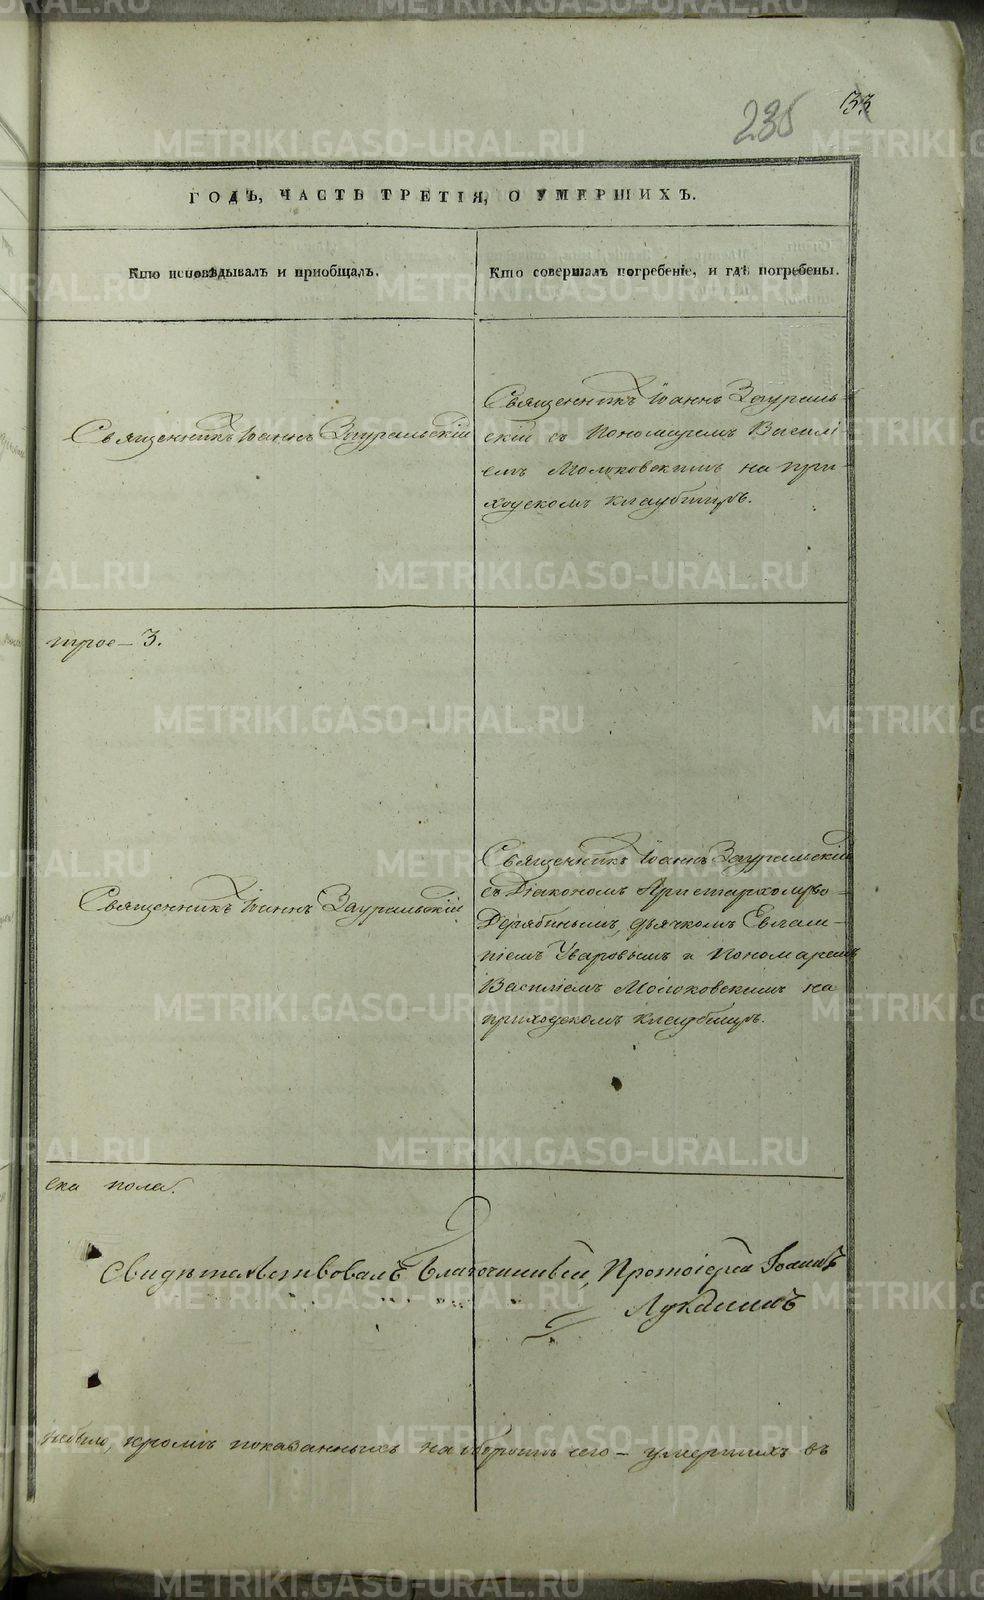 235 33
ГОДЪ, ЧАСТЬ ТРЕТІЯ, О УМЕРШИХЪ.
Кто исповѣдывалъ и приобщалъ.
Кто совершалъ погребеніе, и гдѣ погребены.
Священникъ Іоаннъ Зауральскій
Священникъ Іоаннъ Зураль-
скій съ Пономаремъ Василі-
емъ Молоковскимъ на при-
ходскомъ кладбищѣ.
трое – 3.
Священникъ Іоаннъ Зауральскій
Священникъ Іоаннъ Зауральскій
съ Діакономъ Аристархомъ
Дерябинымъ, дьячкомъ Евлам-
піемъ Уваровымъ и Пономаремъ
Василіемъ Молоковскимъ на
приходскомъ кладбищѣ.
ска пола.
Свидѣтельствовалъ Благочинный, Протоіерей Іоаннъ
Луканинъ
небыло, кромѣ показанныхъ на оборотѣ сего – умершихъ въ
METRIKI.GASO-URAL.RU